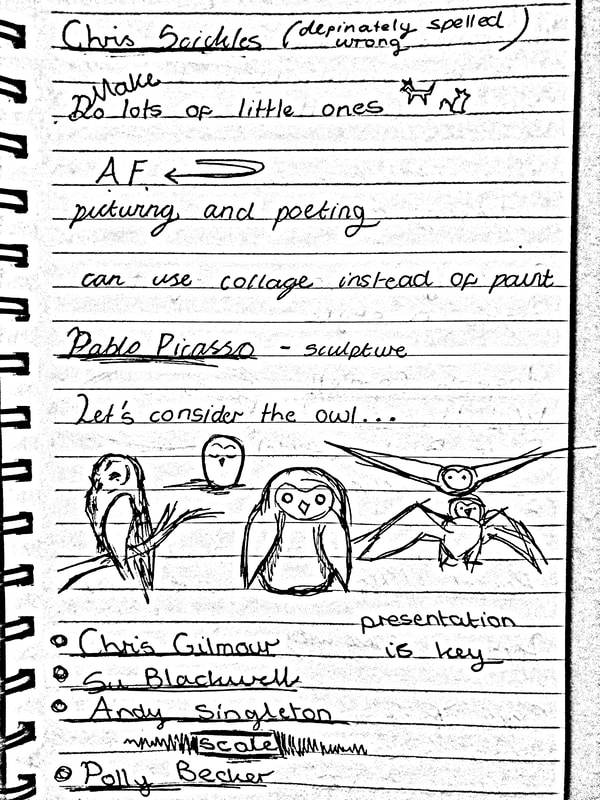 Chris Scickles (definately spelled
wrong)
Make
Do lots of little ones
AF
picturing and poeting
can use collage instead of paint
Pablo Picasso - sculpture
Let's consider the owl...
presentation
is key
Chris Gilmour
Su Blackwell
Andy Singleton
scale
Polly Becker